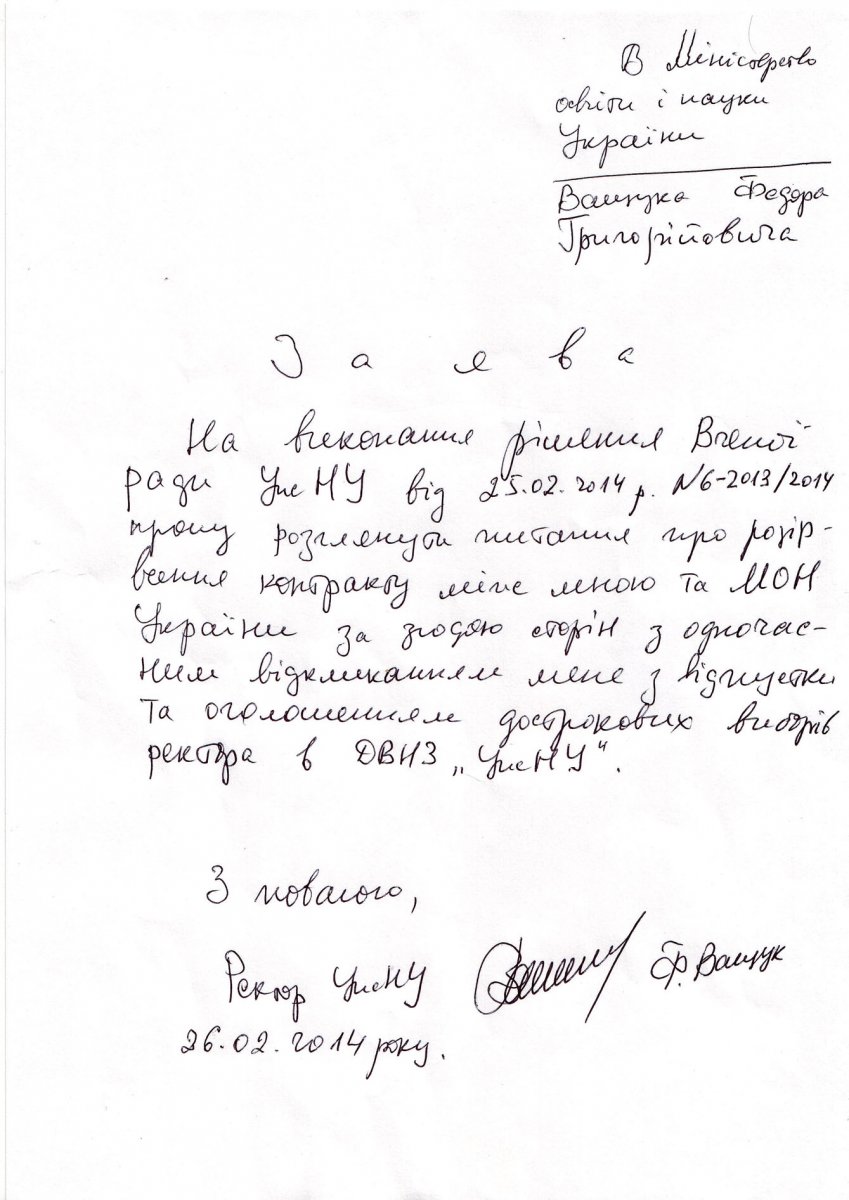 В Міністерство
освіти і науки
України
Ващука Федора
Григорійовича
Заява
На виконання рішення Вченої
ради УжНУ від 25.02.2014 р. №6-2013/2014
прошу розглянути питання про розір-
вання контракту між мною та МОН
України за згодою сторін з одночас-
ним відкликанням мене з відпустки
та оголошенням дострокових виборів
ректора в ДВНЗ „УжНУ“.
З повагою,
Ректор УжНУ Ф. Ващук
26.02.2014 року.